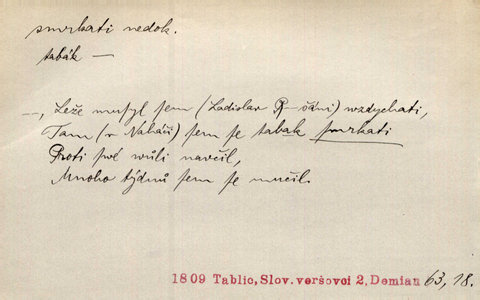 smrkati nedok.
tabák —
--, Leže musyl sem (Ladislav P–šáni) wzdychati,
Tam (v Naháči) sem se tabak smrkati
Proti swé wůli navčil,
Mnoho týdnů sem se mučil.
1809 Tablic, Slov. veršovci 2, Demian 63, 18.